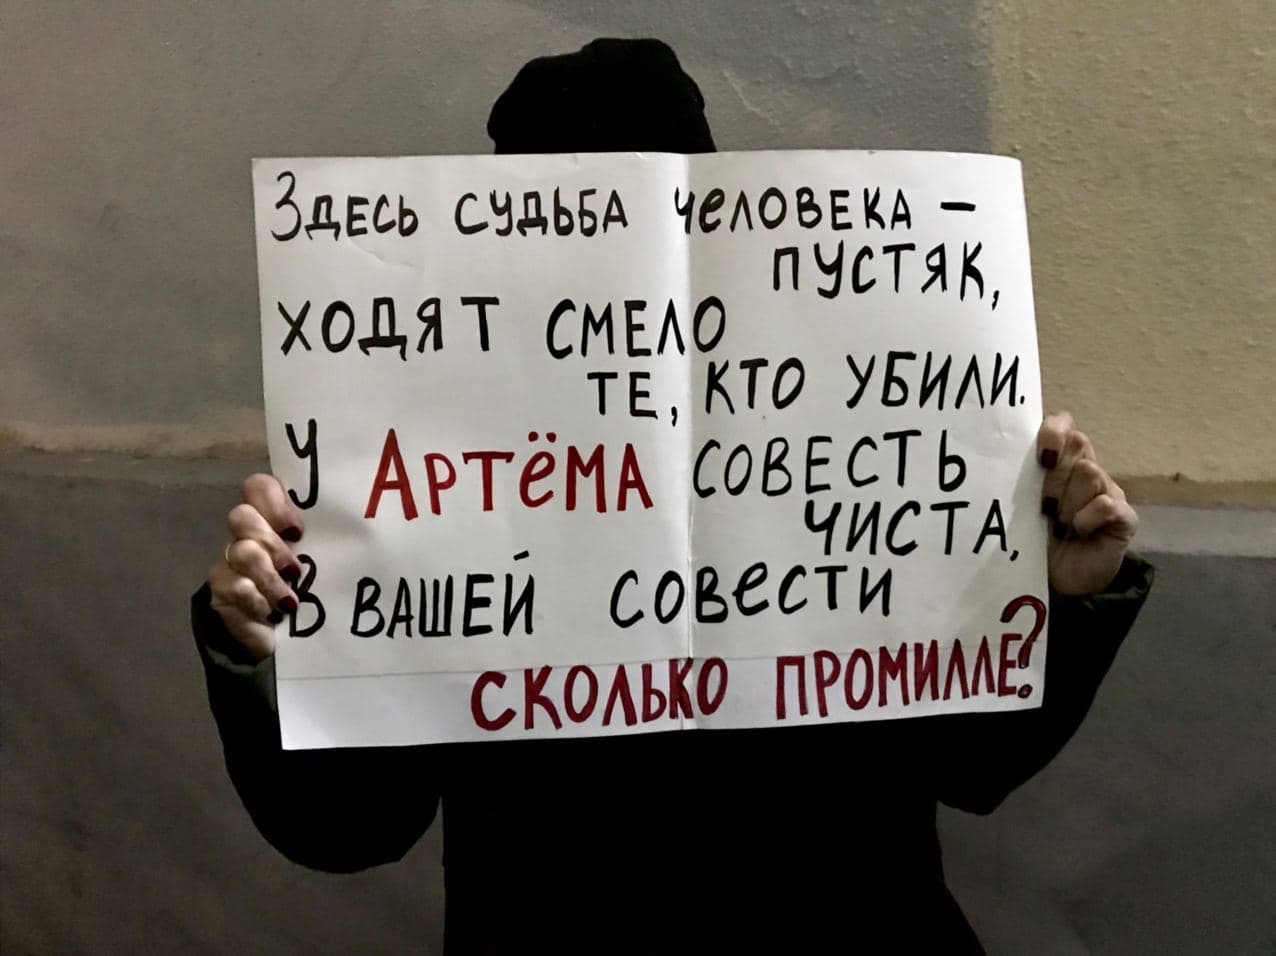 Здесь судьба человека –
пустяк,
ходят смело
те, кто убили.
У Артёма совесть
чиста,
В вашей совести
сколько промилле?